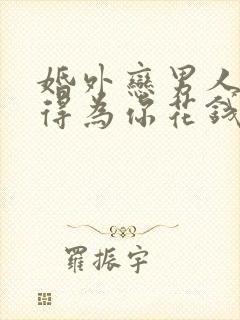 婚外戀男人
得為你花錢
羅振宇